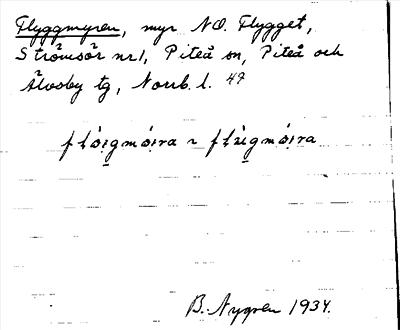 Flyggmyren, myr NO. Flygget,
Strömsör nr1, Piteå sn, Piteå och
Älvsby tg, Norrb. l. 47
flói̯gmói̯ra ~ flúi̯gmói̯ra
B. Nygren 1934.